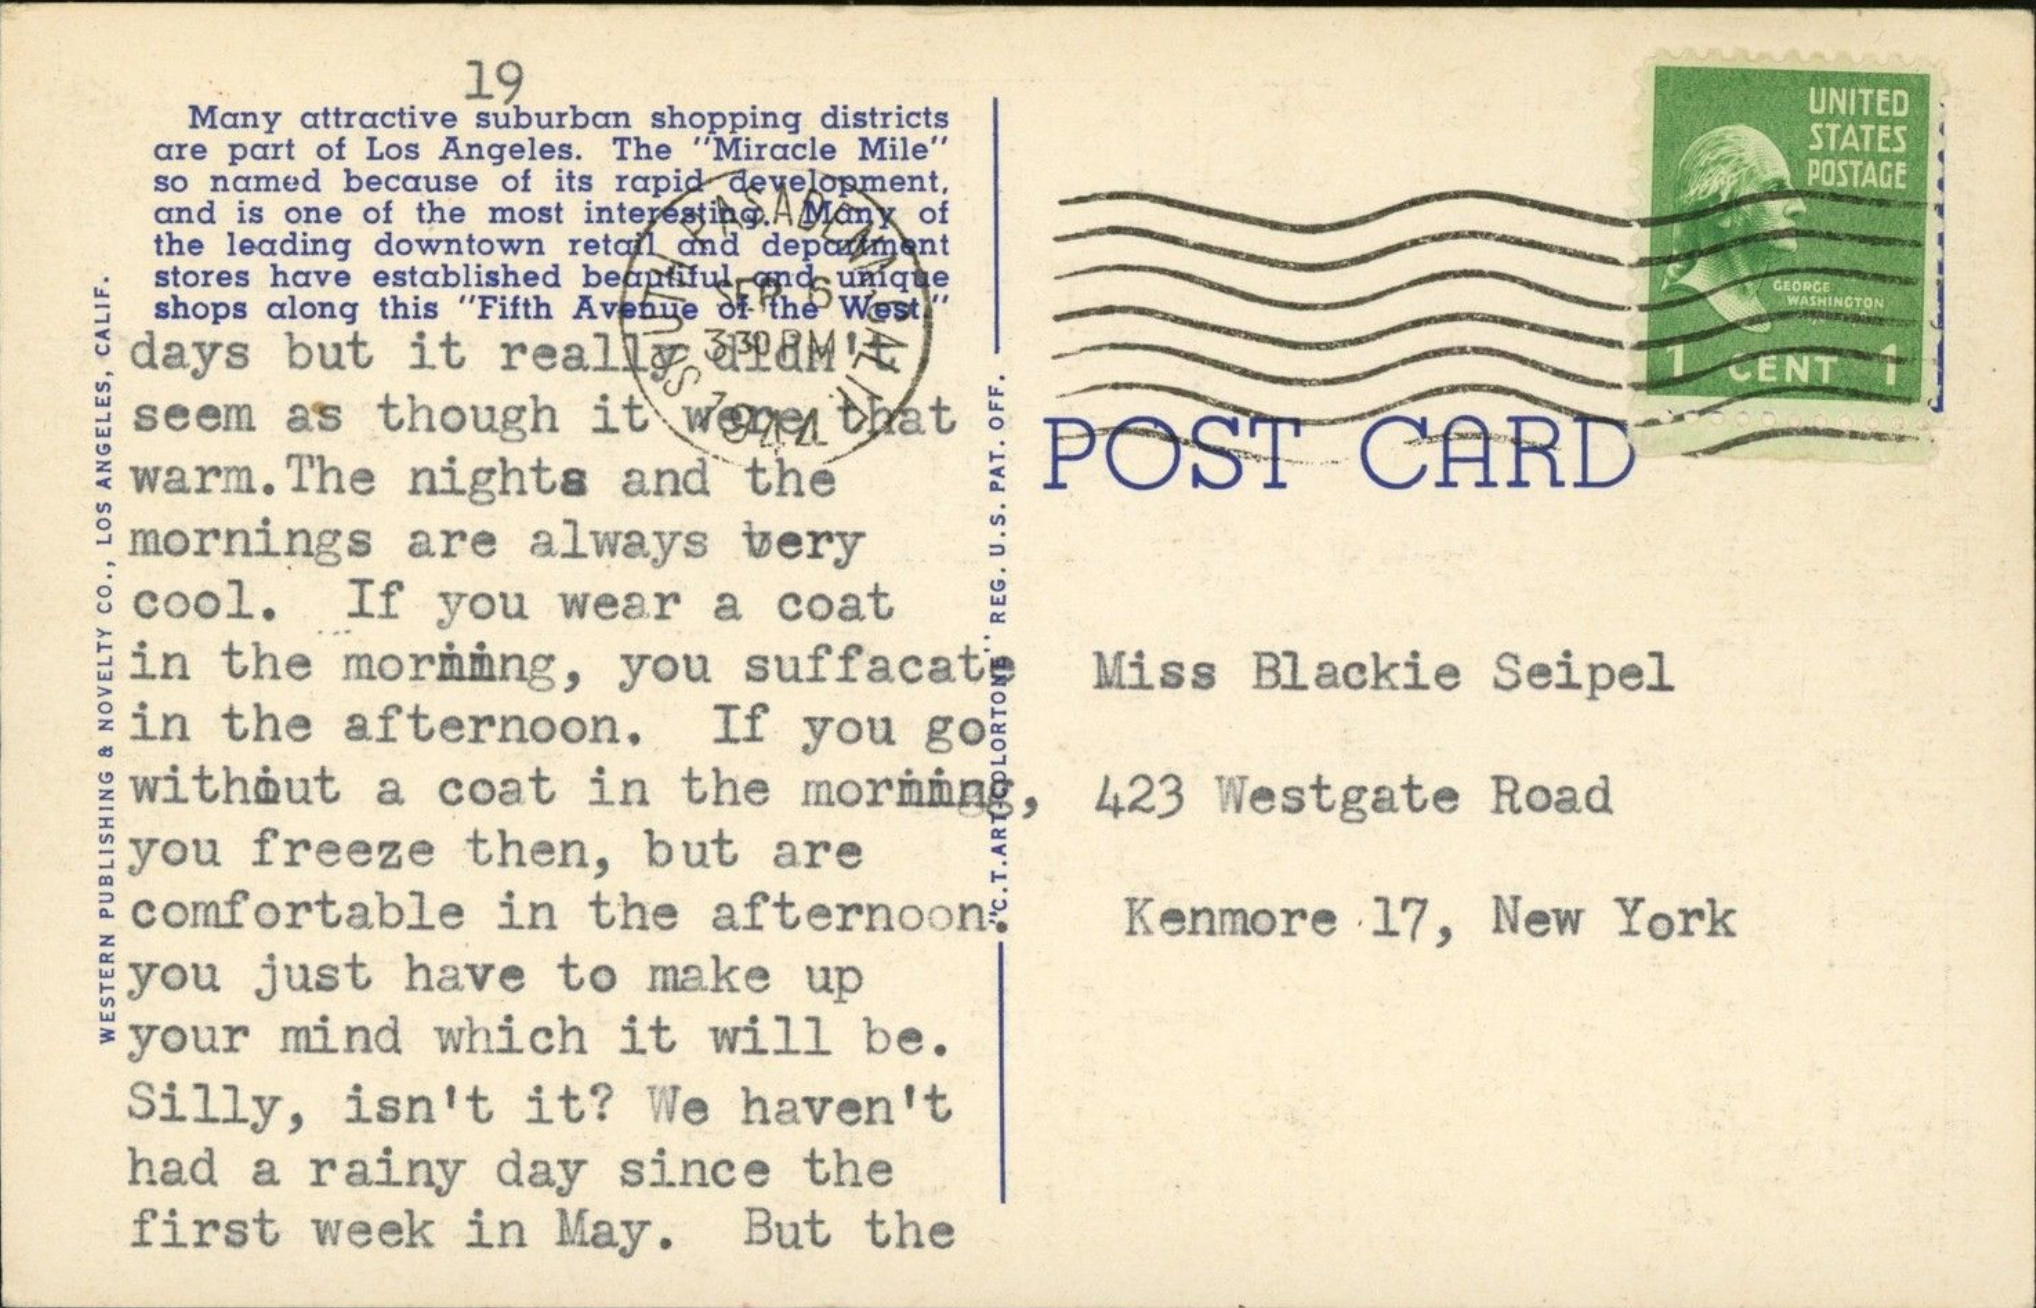 19
Many attractive suburban shopping districts
are part of Los Angeles. The "Miracle Mile"
so named because of its rapid development,
and is one of the most interesting. Many of
the leading downtown retail and department
stores have established beautiful and unique
shops along this "Fifth Avenue of the West."
days but it really didn't
seem as though it were that
warm.The nights and the
mornings are always very
cool. If you wear a coat
in the morning, you suffacate
in the afternoon. If you go
without a coat in the morning,
you freeze then, but are
comfortable in the afternoon.
you just have to make up
your mind which it will be.
Silly, isn't it? We haven't
had a rainy day since the
first week in May. But the
WESTERN PUBLISHING & NOVELTY CO., LOS ANGELES, CALIF.
"C.T.ART-COLORTONE" REG. U.S. PAT. OFF.
SOUTH PASADENA CALIF.
SEP 6
330 PM
1944
UNITED
STATES
POSTAGE
GEORGE
WASHINGTON
1 CENT 1
POST CARD
Miss Blackie Seipel
423 Westgate Road
Kenmore 17, New York